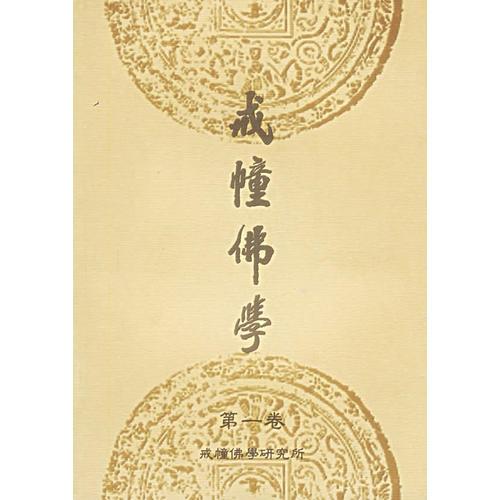 戒幢佛學
第一卷
戒幢佛學研究所